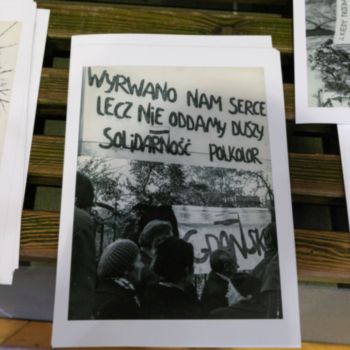 WYRWANO NAM SERCE
LECZ NIE ODDAMY DUSZY
SOLIDARNOŚĆ POLKOLOR
GDAŃSK